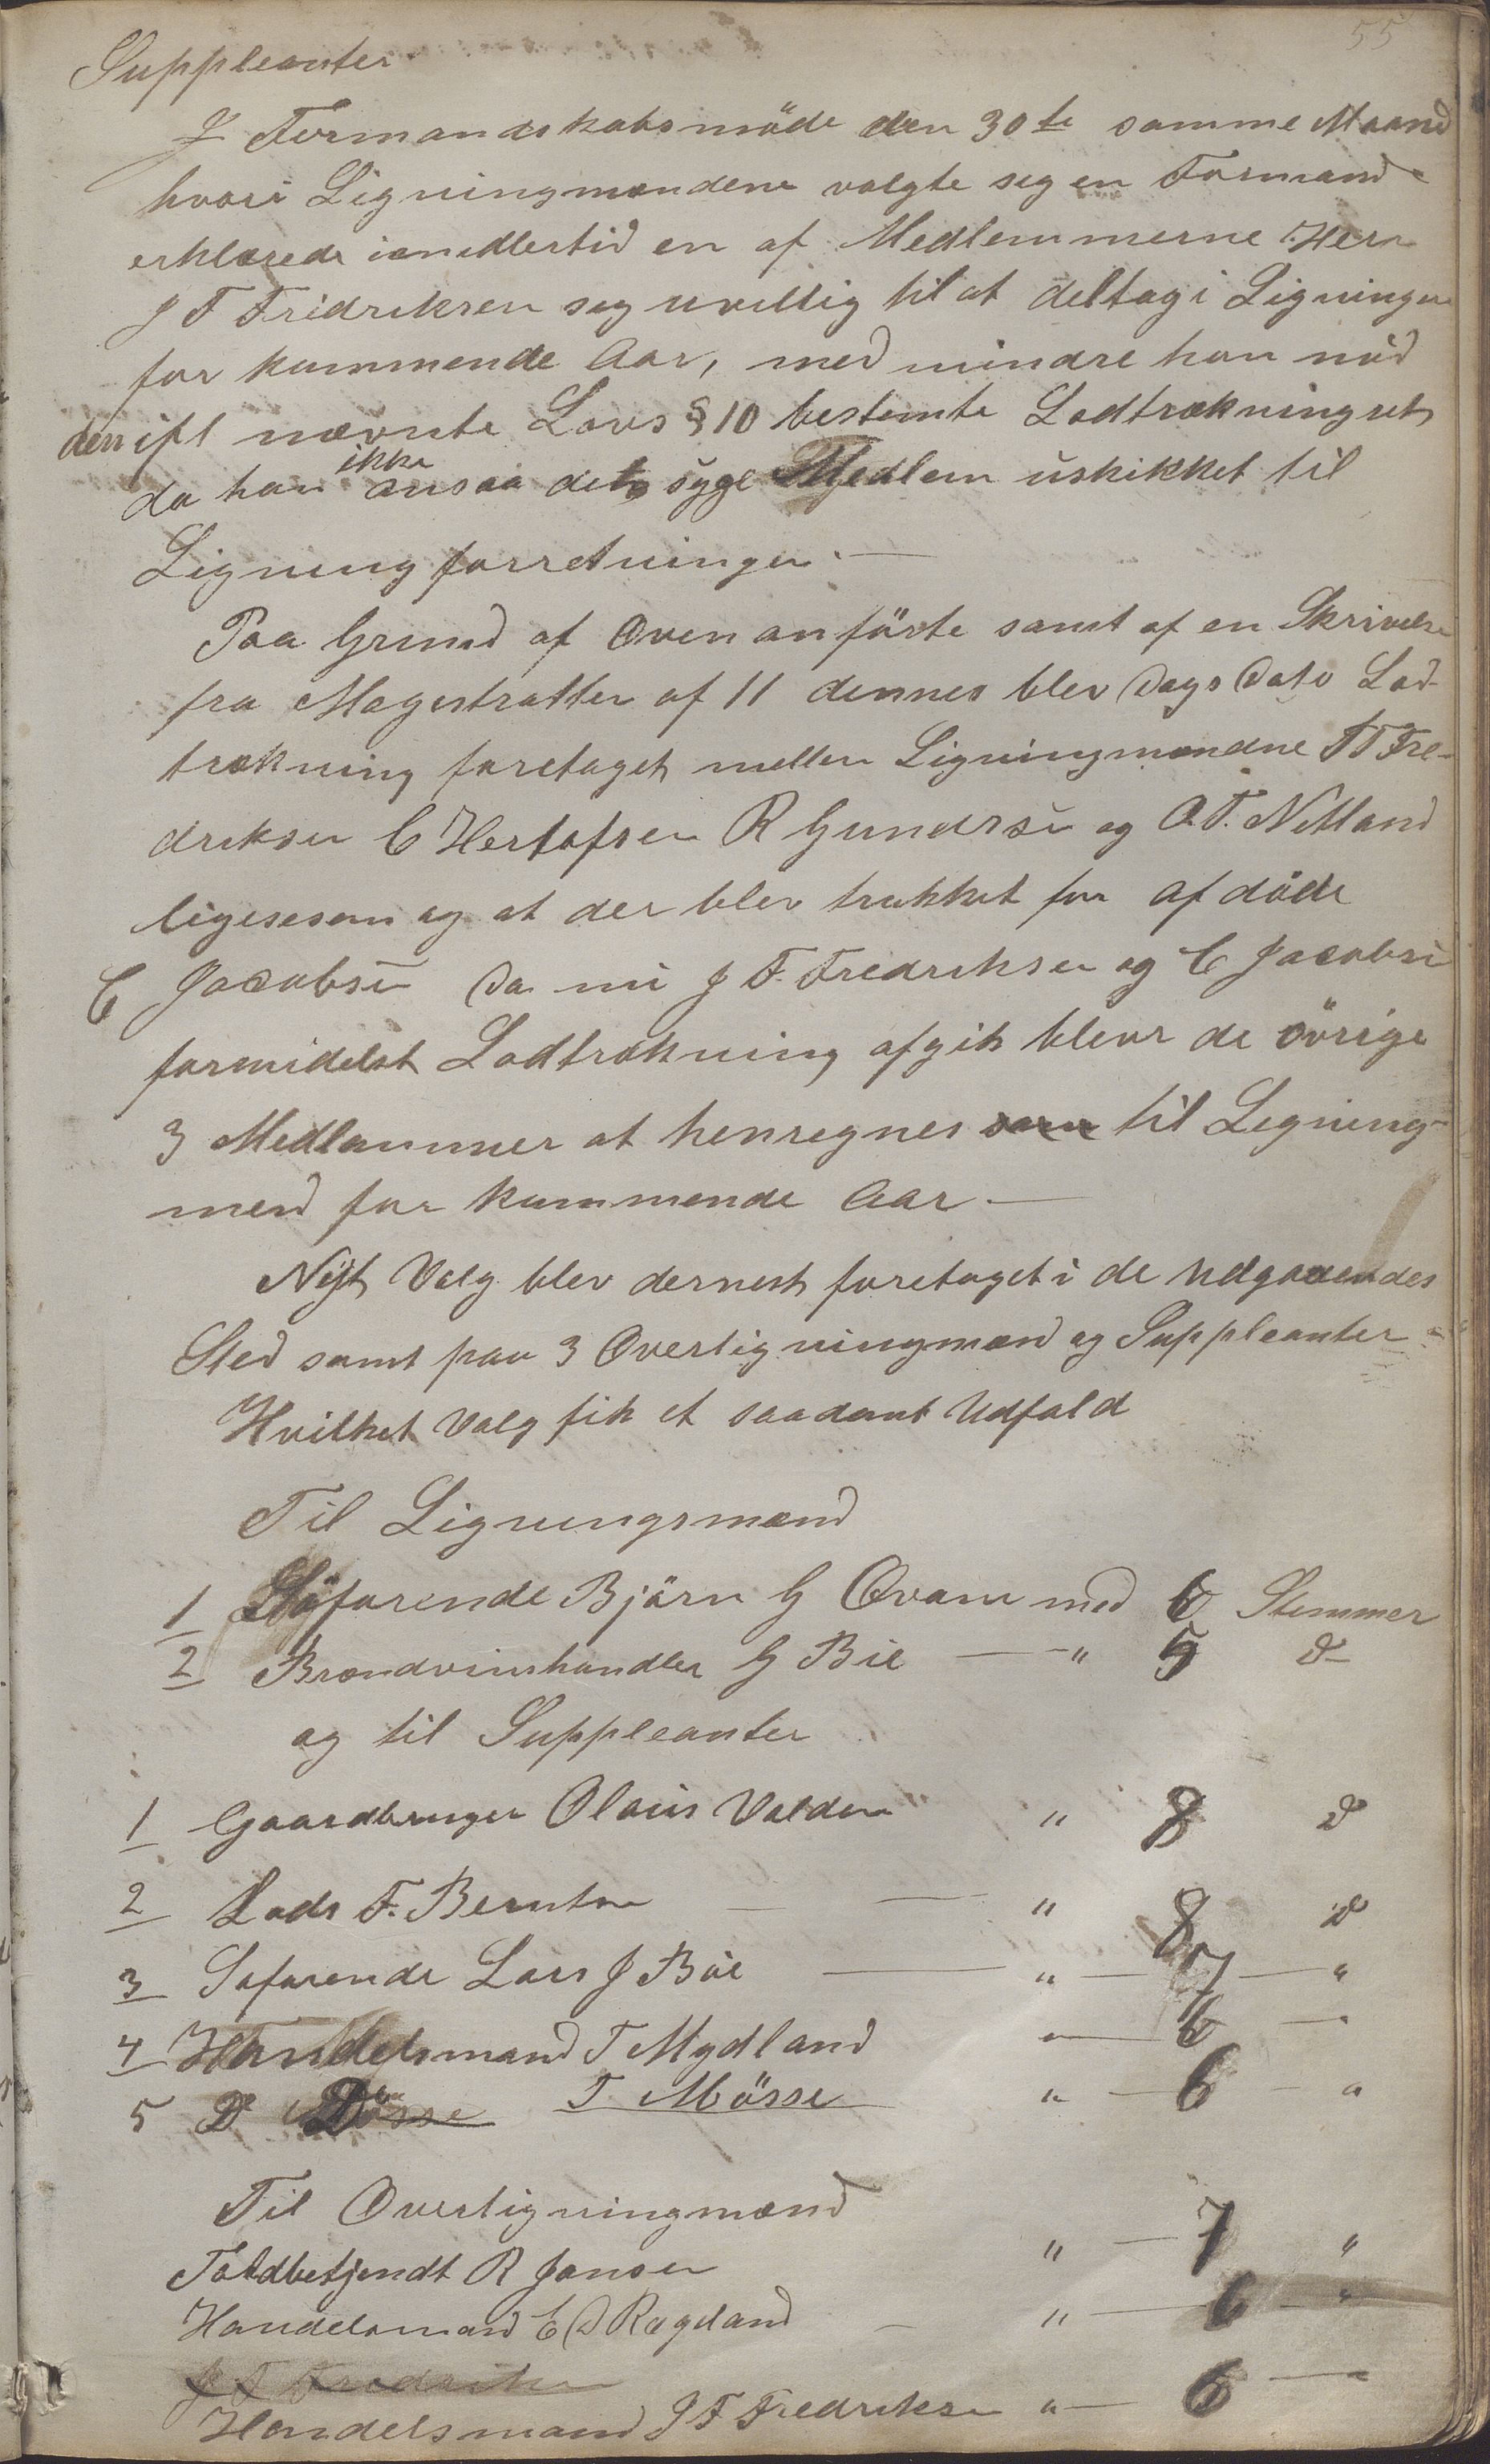 55
Suppleanter
I Formandskabsmöde den 30te samme Maand
hvori Ligningmændene valgte seg en Formand
erklærede imidlertid en af Medlemmerne Herr
J F Fridriksen seg uvillig til at deltag i Ligningen
for kommende Aar, med mindre han nöd
den ifl nævnte Lovs § 10 bestemte Lodtrækningret
da han ikke ansaa det syge Medlem uskikket til
Ligning forretninger. —
Paa Grund af Ovenanförte samt af en Skrivelse
fra Magestratten af 11 dennes blev Dags Dato Lod-
trækning foretaget mellem Ligningmændne J F Fre-
driksen C Herlofsen R Gundersen og O. T. Netland
ligesesom og at der blev trukket for afdöde
C Jacobsen Da nu J F. Fredriksen og C Jacobsen
formidelst Lodtrækning afgik blevr de övrige
3 Medlammer at henregnes som til Ligning-
mend for kommende Aar —
Nyt Valg blev dernest foretaget i de Udgaaendes
Sted samt paa 3 Overligningmænd og Suppleanter -
Hvilket Valg fik et saadant Udfald
Til Ligningsmænd
1 Söfarende Björn G Ovane med 6 Stemmer
2 Brændvinshandler G Böe — " 5 D—
og til Suppleanter
1 Gaardbruger Olaus Valden " 8 D
2 Lods F. Berntsen — " 8 D
3 Söfarende Lars J Böe — " — 7 — "
4 Handelsmand T Mydland " — 6 — "
5 Do Dösse T Mösse " — 6 — "
Til Overligningmænd
Toldbetjendt R Jansen " — 7 "
Handelsmand E D Rægeland — " — 6 — "
J F Fredriksen
Handelsmand J F Fredriksen " — 6 — "